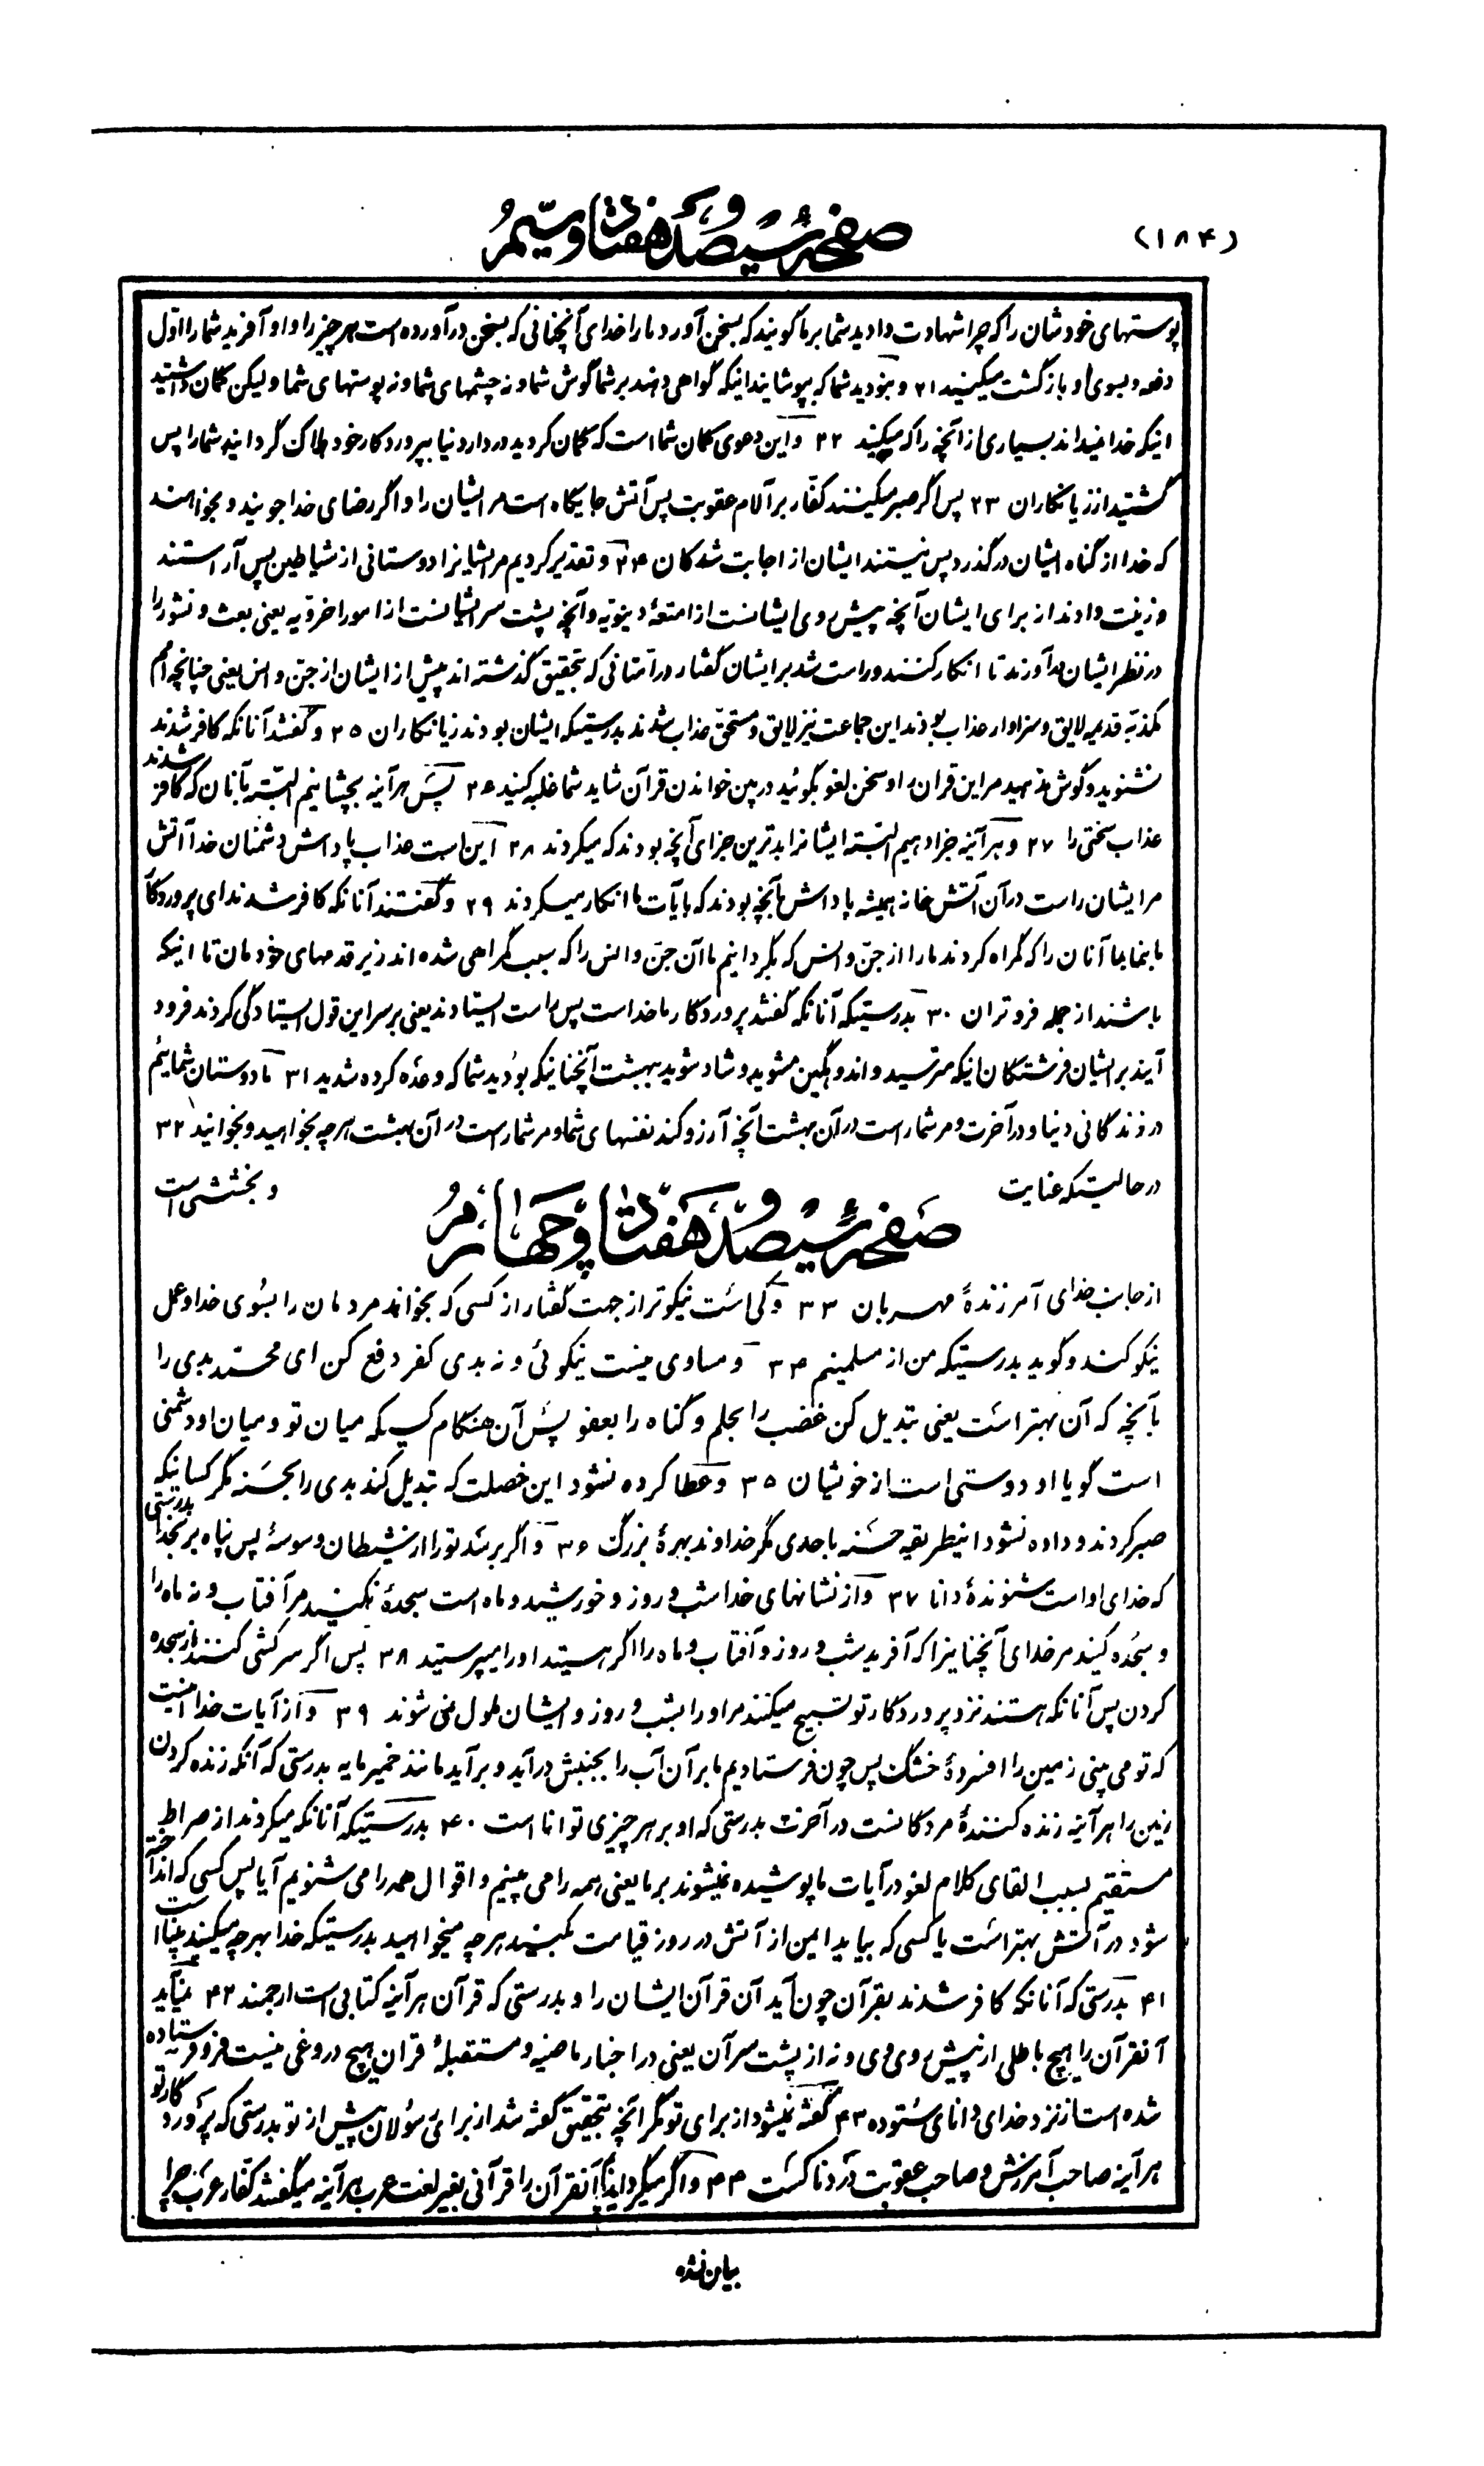 (۱۸۴)
صفحهٔ سیصد و هفتاد و سیم
پوستهای خودشان را که چرا شهادت دادید شما بر ما گویند که بسخن آورد ما را خدای آنچنانی که بسخن درآورده است هر چیز را و او آفرید شما را اوّل
دفعه و بسوی او بازگشت میکنید ۲۱ و نبودید شما که بپوشانید اینکه گواهی دهند بر شما گوش شما و نه چشمهای شما و نه پوستهای شما و لیکن گمان داشتید
اینکه خدا نمیداند بسیاری از آنچه را که میکنید ۲۲ و این دعوی گمان شما است که گمان کردید در دار دنیا بپروردگار خود هلاک گردانید شما را پس
گشتید از زیانکاران ۲۳ پس اگر صبر میکنند کفّار بر آلام عقوبت پس آتش جایگاه است مر ایشان را و اگر رضای خدا جویند و بخواهند
که خدا از گناه ایشان درگذرد پس نیستند ایشان از اجابت شدگان ۲۴ و تقدیر کردیم مر ایشانرا دوستانی از شیاطین پس آراستند
و زینت دادند از برای ایشان آنچه پیش روی ایشانست از امتعهٔ دینویّه و آنچه پشت سر ایشانست از امور اخرویّه یعنی بعث و نشور را
در نظر ایشان بد آورند تا انکار کنند و راست شد بر ایشان گفتار در امّتانی که بتحقیق گذشته اند پیش از ایشان از جنّ و انس یعنی چنانچه امم
مکذبّه قدیمه لایق و سزاوار عذاب بودند این جماعت نیز لایق و مستحقّ عذاب شدند بدرستیکه ایشان بودند زیانکاران ۲۵ و گفتند آنانکه کافر شدند
نشنوید و گوش مدهید مر این قران را و سخن لغو بگوئید در بین خواندن قرآن شاید شما غلبه کنید ۲۶ پس هر آینه بچشانیم البتّه بآنان که کافر شدند
عذاب سختی را ۲۷ و هر آینه جزا دهیم البتّه ایشانرا بدترین جزای آنچه بودند که میکردند ۲۸ این است عذاب پاداش دشمنان خدا آتش
مر ایشان راست در آن آتش خانه همیشه پاداش بآنچه بودند که بآیات ما انکار میکردند ۲۹ و گفتند آنانکه کافر شدند ای پروردگار
ما بنما بما آنان را که گمراه کردند ما را از جنّ و انس که بگردانیم ما آن جنّ و انس را که سبب گمراهی شده اند زیر قدمهای خودمان تا اینکه
باشند از جمله فروتران ۳۰ بدرستیکه آنانکه گفتند پروردگار ما خداست پس راست ایستادند یعنی بر سر این قول ایستادگی کردند فرود
آیند بر ایشان فرشتگان اینکه مترسید و اندوهگین مشوید و شاد شوید ببهشت آنچنانیکه بودید شما که وعده کرده شدید ۳۱ ما دوستان شمائیم
در زندگانی دنیا و در آخرت و مر شمار است در آن بهشت آنچه آرزو کند نفسهای شما و مر شمار است در آن بهشت هر چه بخواهید و بخوانید ۳۲
در حالیستیکه عنایت و بخششی است
صفحهٔ سیصد و هفتاد و چهارم
از جانب خدای آمرزندهٔ مهربان ۳۳ و کی است نیکوتر از جهت گفتار از کسی که بخواند مردمان را بسوی خدا و عمل
نیکو کند و گوید بدرستیکه من از مسلمینم ۳۴ و مساوی نیست نیکوئی و نه بدی کفر دفع کن ای محمّد بدی را
بآنچه که آن بهتر است یعنی تبدیل کن غضب را بحلم و گناه را بعفو پس آن هنگام کسیکه میان تو و میان او دشمنی
است گویا او دوستی است از خویشان ۳۵ و عطا کرده نشود این خصلت که تبدیل کند بدی را بحسنه مگر کسانیکه
صبر کردند و داده نشود اینطریقهٔ حسنه باحدی مگر خداوند بهرهٔ بزرگ ۳۶ و اگر برسد تو را از شیطان وسوسهٔ پس پناه بر بخدا بدرستی
که خدای او است شنوندهٔ دانا ۳۷ و از نشانهای خدا شب و روز و خورشید و ماه است سجدهٔ نکنید مر آفتاب و نه ماه را
و سجده کنید مر خدای آنچنانیرا که آفرید شب و روز و آفتاب و ماه را اگر هستید او را میپرستید ۳۸ پس اگر سرکشی کنند از سجده
کردن پس آنانکه هستند نزد پروردگار تو تسبیح میکنند مر او را بشب و روز و ایشان ملول نمی شوند ۳۹ و از آیات خدا اینست
که تو می بینی زمین را افسردهٔ خشک پس چون فرستادیم ما بر آن آب را بجنبش درآید و برآید مانند خمیر مایه بدرستی که آنکه زنده کردن
زمین را هر آینه زنده کنندهٔ مردگانست در آخرت بدرستی که او بر هر چیزی توانا است ۴۰ بدرستیکه آنانکه میگردند از صراط
مستقیم بسبب القای کلام لغو در آیات ما پوشیده نمیشوند بر ما یعنی همه را می بینیم و اقوال همه را می شنویم آیا پس کسی که انداخته
شود در آتش بهتر است یا کسی که بیاید ایمن از آتش در روز قیامت بکنید هر چه میخواهید بدرستیکه خدا بهر چه میکنید بینا است
۴۱ بدرستی که آنانکه کافر شدند بقرآن چون آید آن قرآن ایشان را و بدرستی که قرآن هر آینه کتابی است ارجمند ۴۲ نمیآید
آنقرآن را هیچ باطلی از پیش روی وی و نه از پشت سر آن یعنی در اخبار ماضیه و مستقبلهٔ قران هیچ دروغی نیست فرو فرستاده
شده است از نزد خدای دانای ستوده ۴۳ گفته نمیشود از برای تو مگر آنچه بتحقیق گفته شد از برای رسولان پیش از تو بدرستی که پروردگار تو
هر آینه صاحب آمرزش و صاحب عقوبت دردناکست ۴۴ و اگر میگردانیدیم آنقرآن را قرآنی بغیر لغت عرب هر آینه میگفتند کفّار عرب چرا
بیان نشده